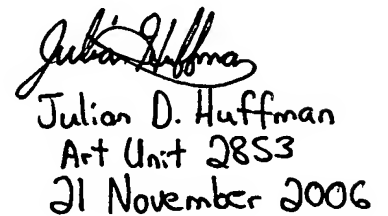 Julian Huffman
Julian D. Huffman
Art Unit 2853
21 November 2006